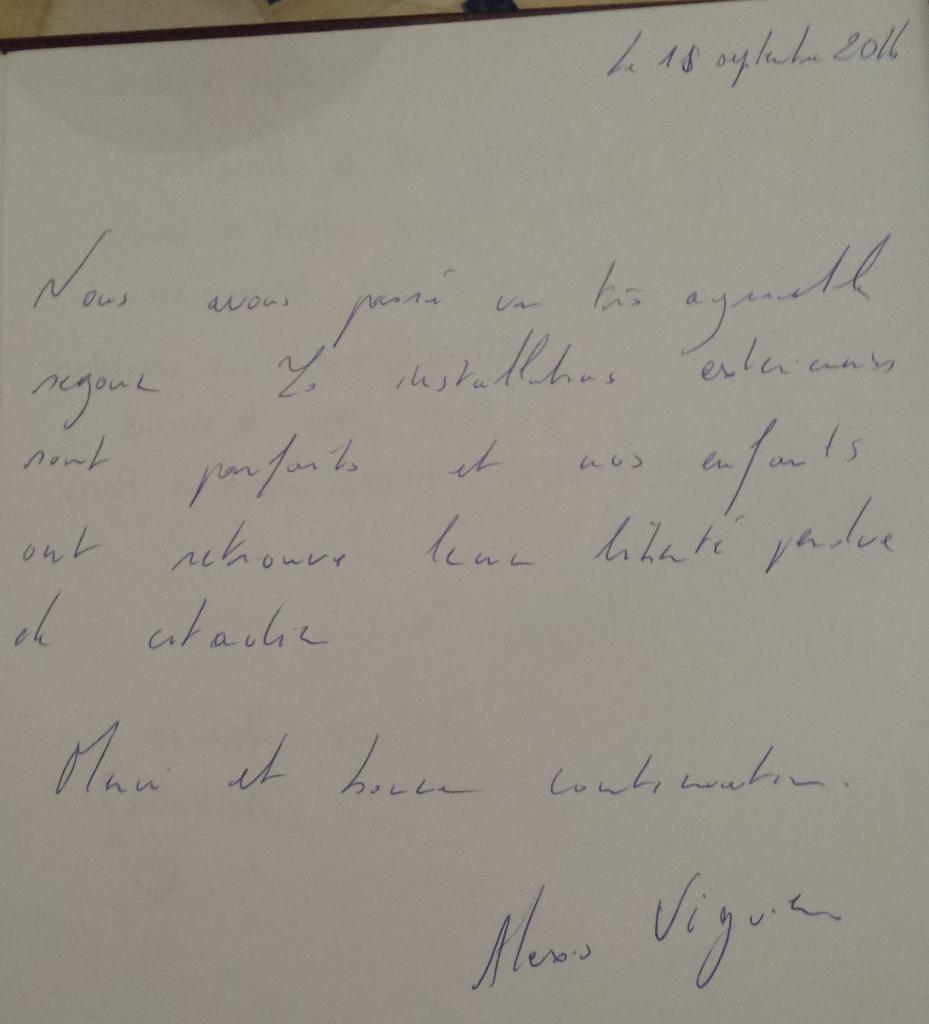 Le 18 septembre 2016
Nous avons passé un très agréable
séjour. Les installations exterieures
sont parfaites et nos enfants
ont retrouvé leur liberté perdue
de citadin
Merci et bonne continuation.
Alexis Viguier